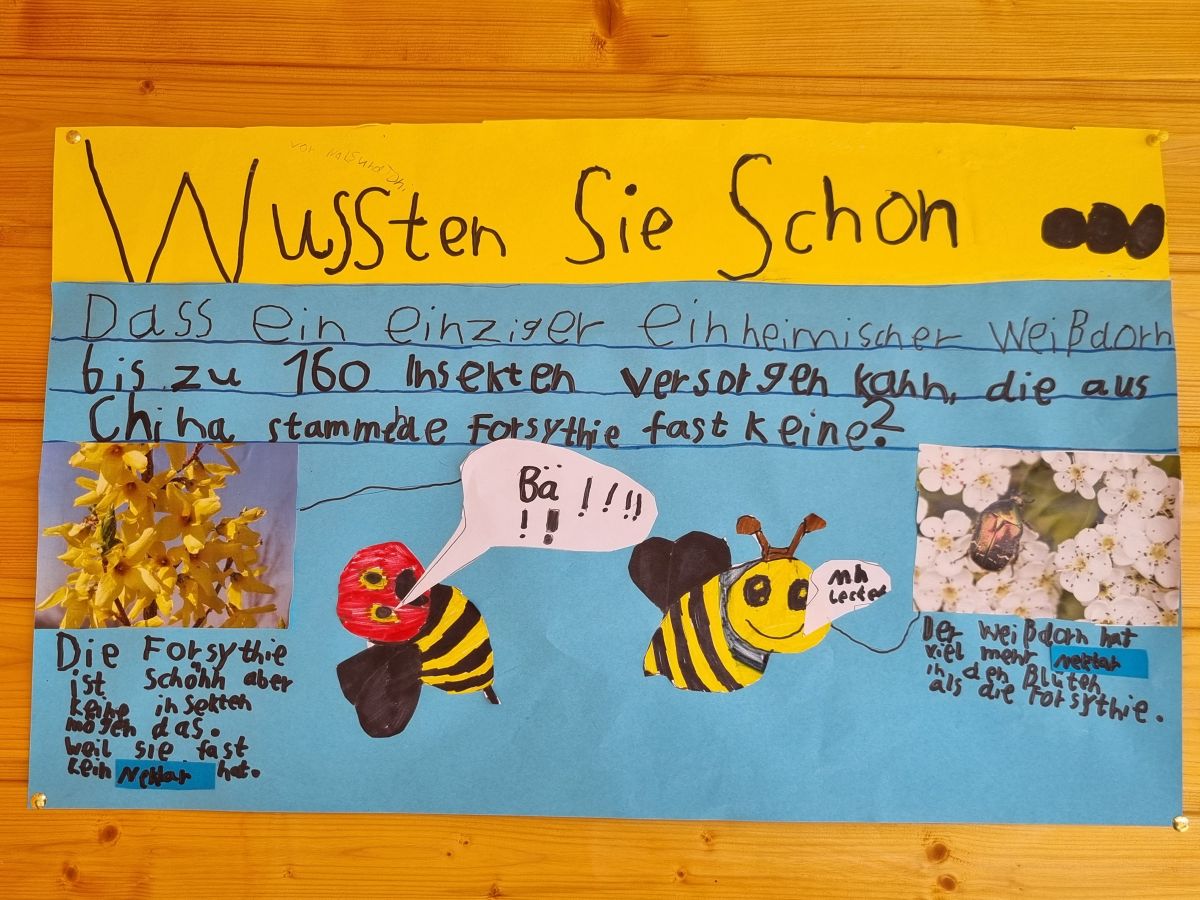 Wussten Sie Schon ...
Dass ein einziger einheimischer Weißdorn
bis zu 160 Insekten versorgen kann, die aus
China stammende Forsythie fast keine?
Bä
! ! ! ! ! !
mh
lecker
Die Forsythie
ist schöhn aber
keine insekten
mögen das.
weil sie fast
kein Nektar hat.
Der Weißdorn hat
viel mehr Nektar
in den Blüten
als die Forsythie.